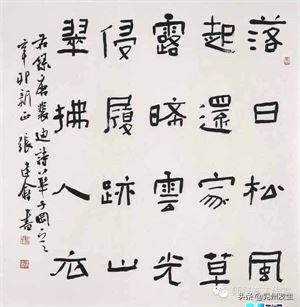 落日松風
起還家草
露晞雲光
侵履跡山
翠拂人衣
右錄唐裴迪詩華子岡
辛卯新正 張建會書
头条 @兖州发生